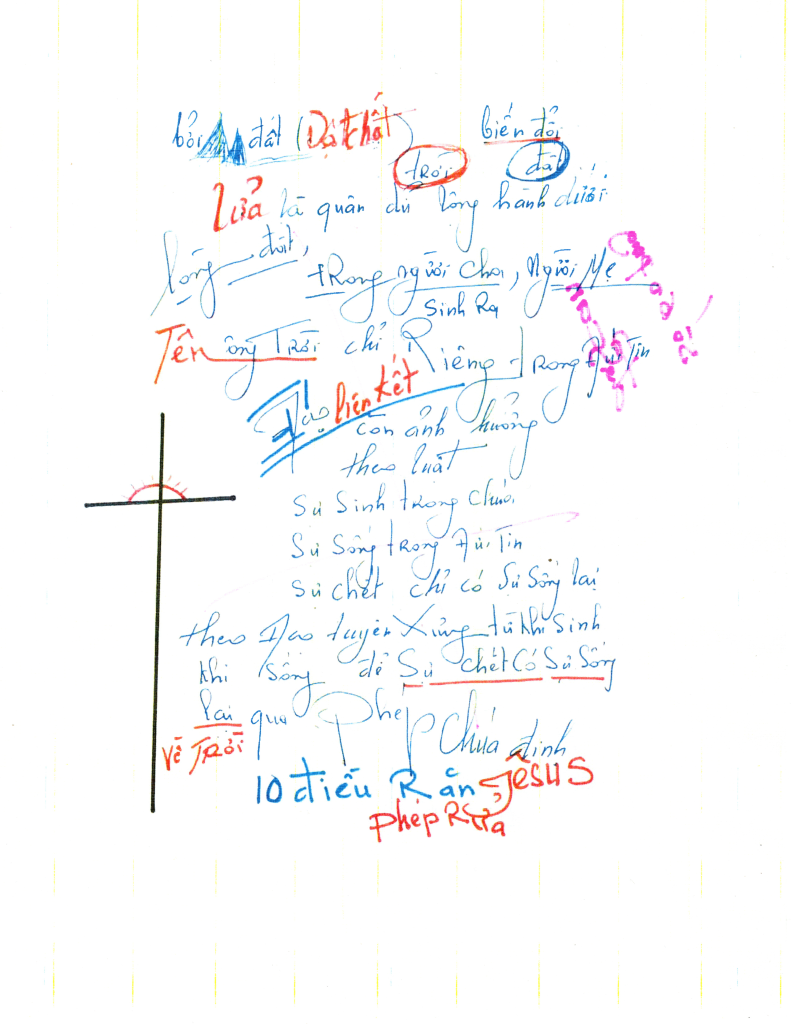 bởi đất (Vật chất) biến đổi
trời đất...
Lửa là quân dù lộng hành dưới
lòng đất,
trong người cha, Người Mẹ
Sinh Ra
Tên ông Trời chỉ Riêng trong Đức Tin
Đạo liên kết
còn ảnh hưởng
theo luật
Sự Sinh trong Chúa
Sự Sống trong Đức Tin
Sự chết chỉ có Sự Sống lại
theo Đạo tuyên Xưng từ khi Sinh
khi Sống để Sự chết Có Sự Sống
lại qua Phép Chúa định
về Trời
10 điều Răn Jêsus
phép Rửa